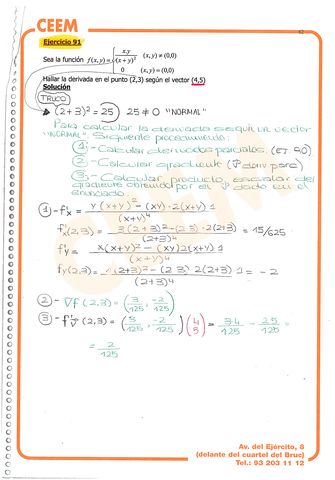 CEEM
42
Ejercicio 91
Sea la función f(x,y) = { x.y / (x+y)² (x,y) ≠ (0,0)
0 (x,y) = (0,0)
Hallar la derivada en el punto (2,3) según el vector (4,5)
Solución
TRUCO
(2+3)² = 25 25 ≠ 0 "NORMAL"
Para calcular la derivada según un vector
"NORMAL". Siguiente procedimiento:
1 - Calcular derivadas parciales (ej. 90)
2 - Calcular gradiente
3 - Calcular producto escalar del
gradiente obtenido por el v⃗ dado en el
enunciado
1 - f'x = y (x+y)² - (xy)·2(x+y)1 / (x+y)⁴
f'x(2,3) = 3(2+3)² - (2·3)·2(2+3) / (2+3)⁴ = 15/625
f'y = x(x+y)² - (xy)2(x+y)1 / (x+y)⁴
fy(2,3) = (2+3)² - (2 3) 2(2+3) 1 / (2+3)⁴ = -2
2 - ∇f (2,3) = (3/125, -2/125)
3 - f'v⃗ (2,3) = (3/125, -2/125) (4 5) = 3·4/125 - 2·5/125 =
= 2/125
Av. del Ejército, 8
(delante del cuartel del Bruc)
Tel.: 93 203 11 12